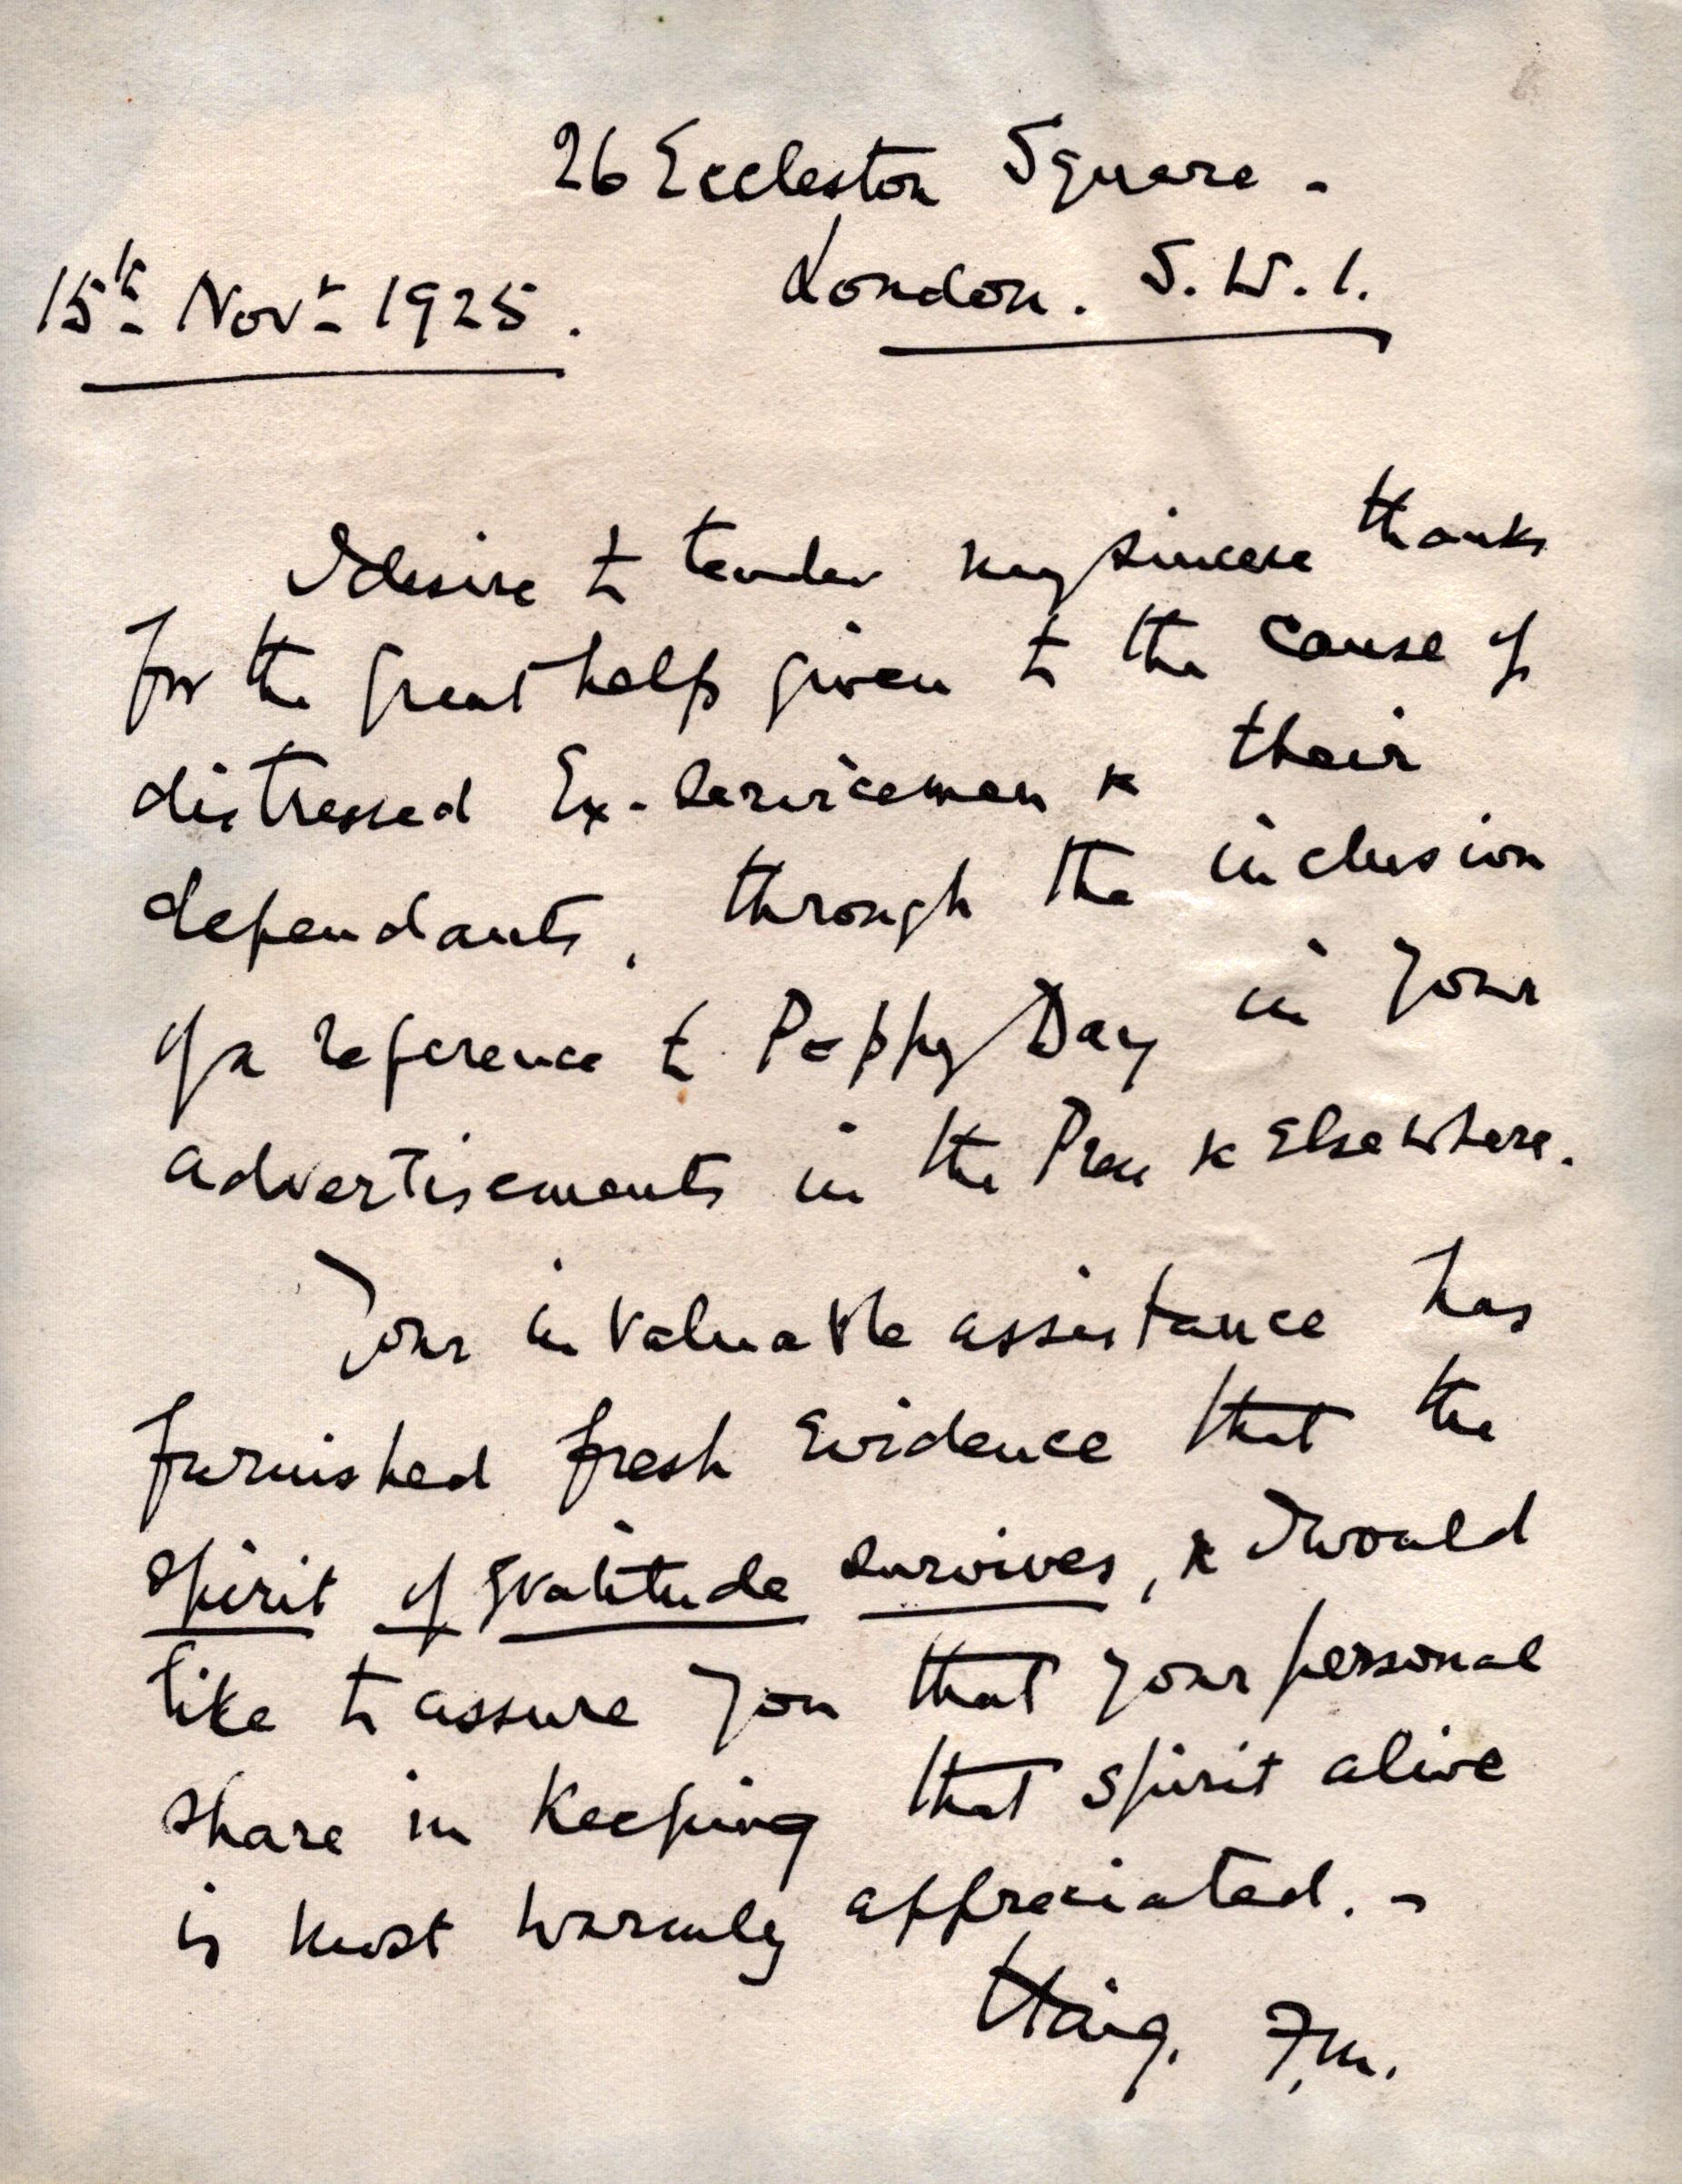 26 Eccleston Square -
London. S.W.1.
15th Novr 1925.
I desire to tender my sincere thanks
for the great help given to the cause of
distressed Ex-Servicemen & their
dependants, through the inclusion
of a reference to Poppy Day in your
advertisements in the Press & Elsewhere.
Your invaluable assistance has
furnished fresh Evidence that the
spirit of gratitude survives, & I would
like to assure you that your personal
share in Keeping that spirit alive
is most warmly appreciated. -
Haig. F.M.